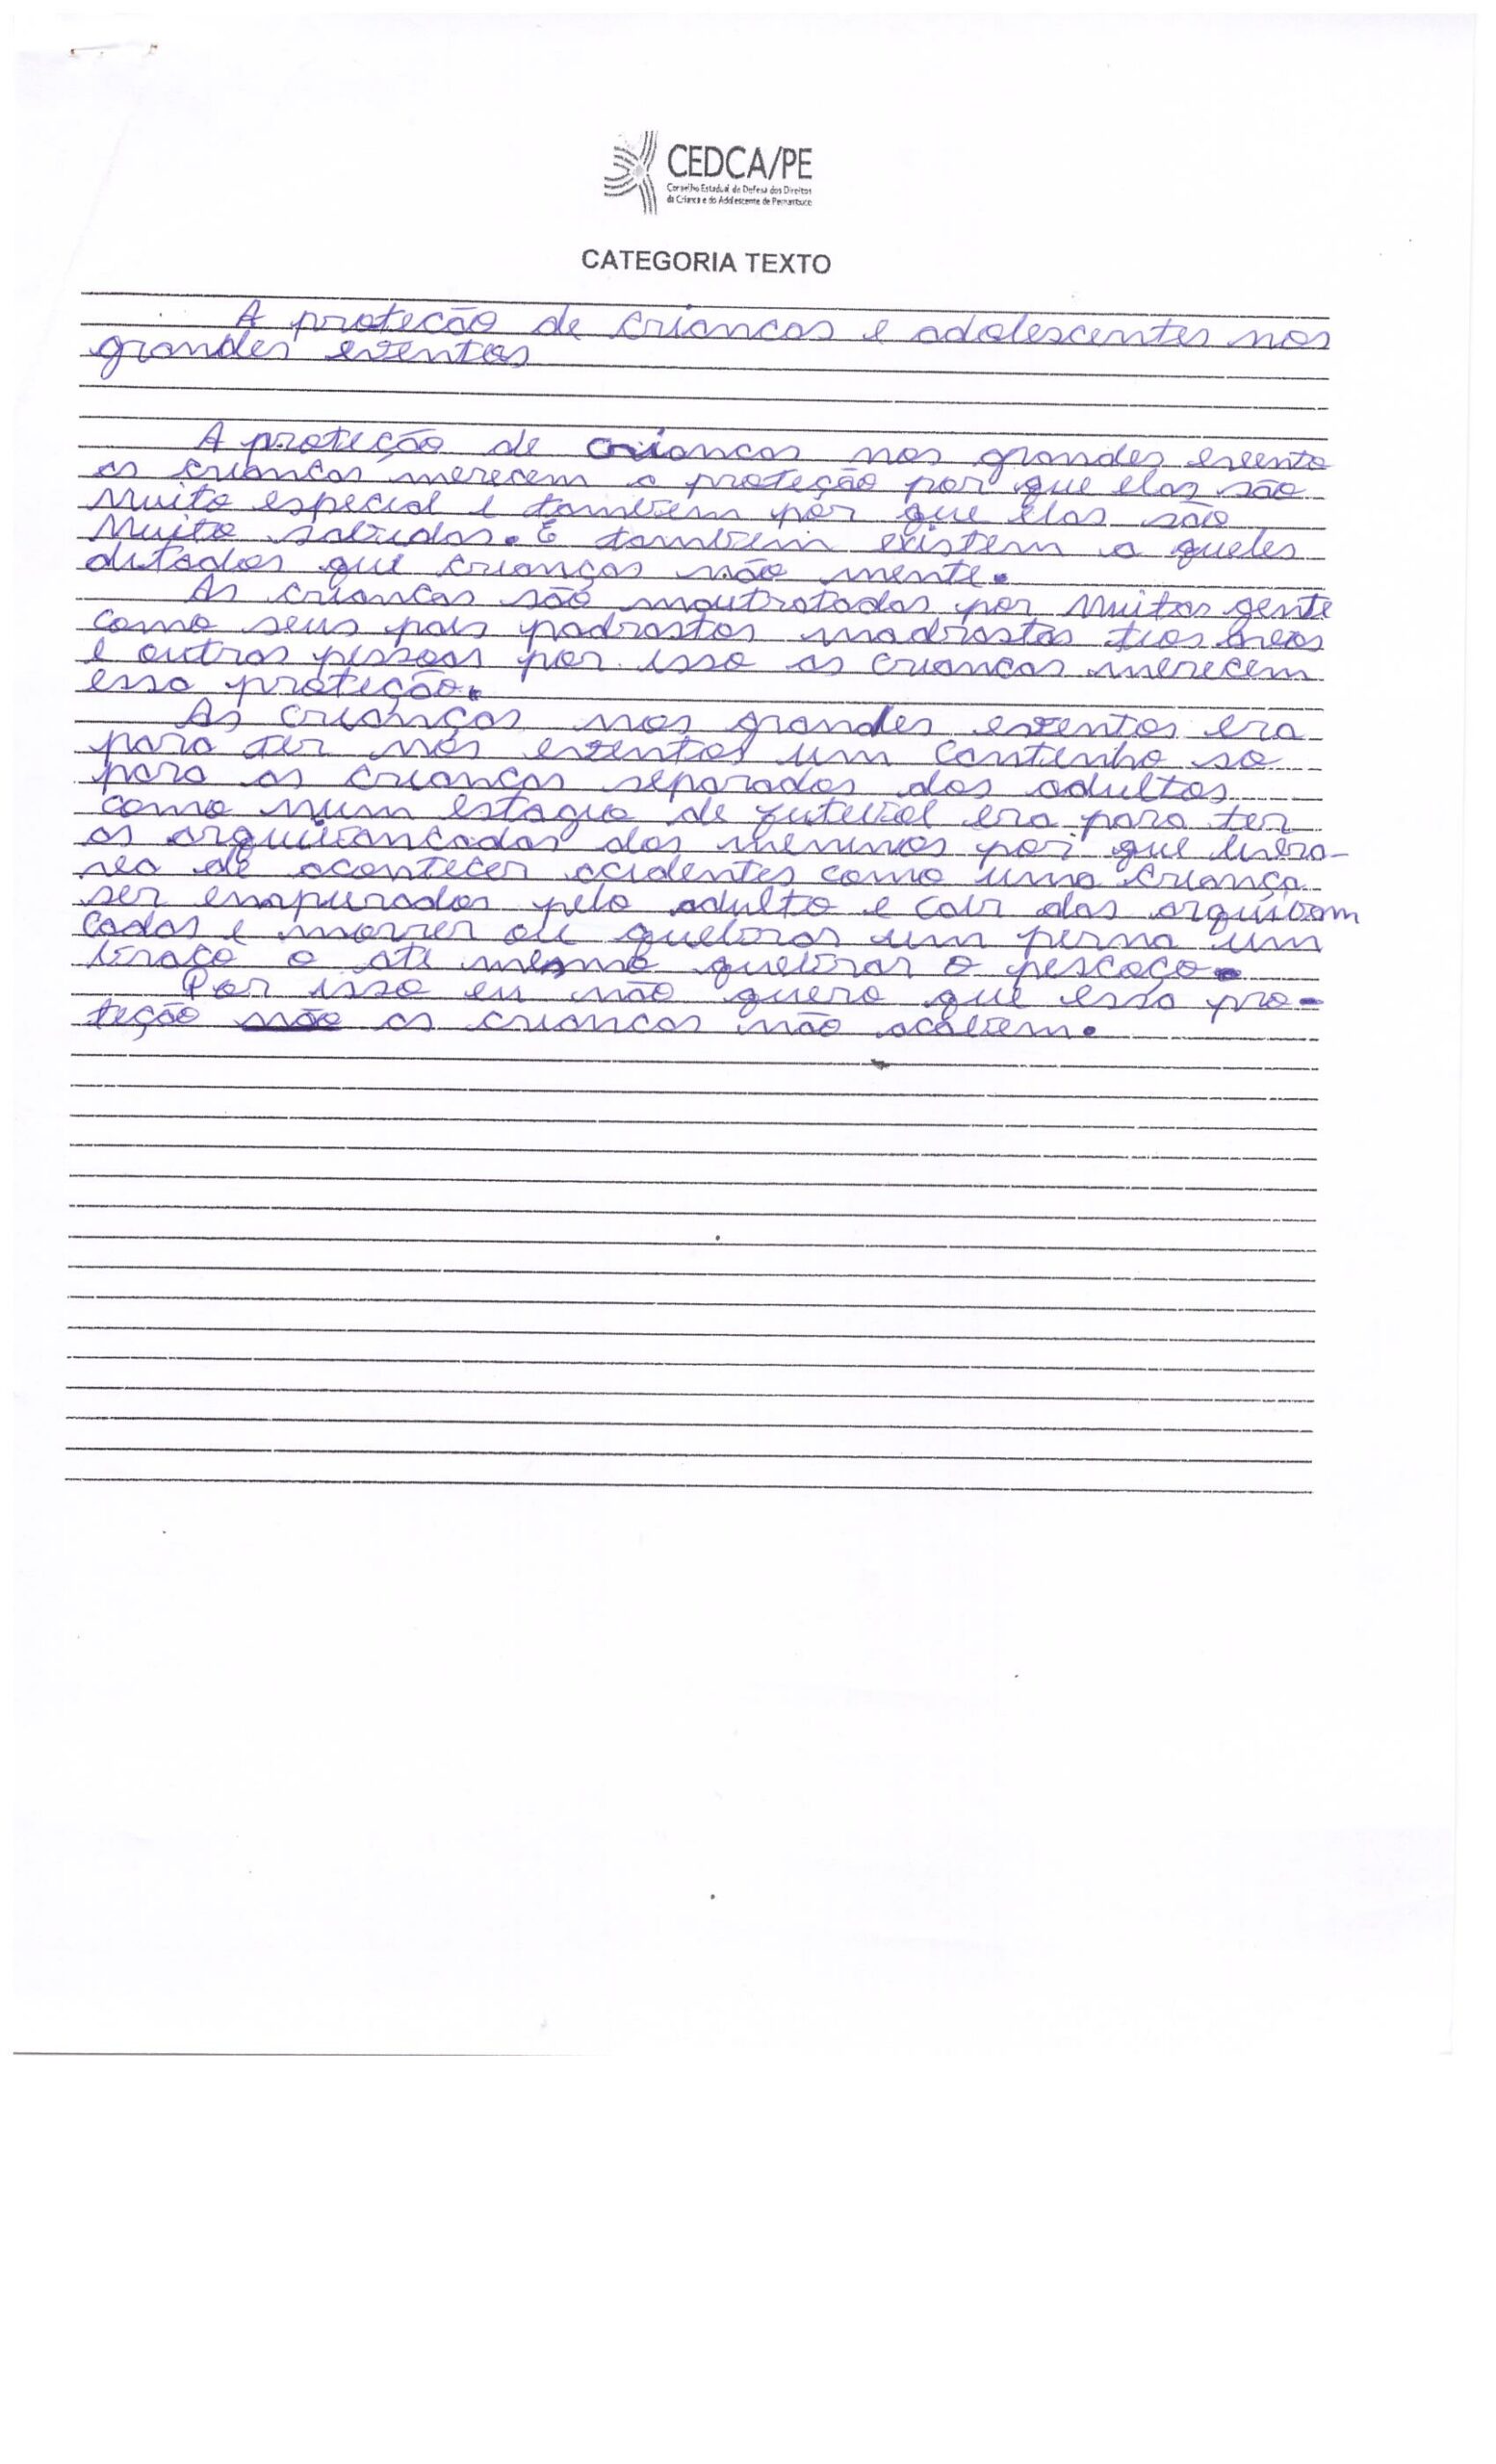 CEDCA/PE
Conselho Estadual de Defesa dos Direitos
da Criança e do Adolescente de Pernambuco
CATEGORIA TEXTO
A protecão de criancas e adolescentes nos
grandes eventos
A proteção de criancas nos grandes evento
as criancas merecem a proteção por que elas são
muito especial e tambem por que elas são
muito sabidas. E tambem existem a queles
ditados que crianças não mente.
As criancas são moutratadas por muitas gente
como seus pais padrastos madrastas tios avos
e outras pessoas por isso as criancas merecem
essa proteção.
As crianças nos grandes eventos era
para ter nos eventos um cantinho so
para as crianças separados dos adultos
como num estagio de futebol era para ter
as arquivancadas dos meninos por que livra-
rea de acontecer acidentes como uma criança
ser enapurados pelo adulto e cair das arquibam
cadas e morrer ou quebrar um perna um
braço o ate mesmo quebrar o pescoço.
Por isso eu não quero que essa pro-
teção não as criancas não acabem.